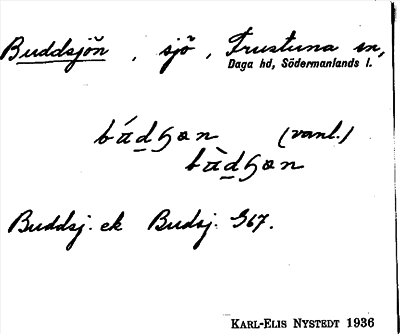 Buddsjön, sjö, Frustuna sn,
Daga hd, Södermanlands l.
bú̱dʒɷn (vanl.)
bù̱dʒɷn
Buddsj. ek Budsj. G67.
KARL-ELIS NYSTEDT 1936